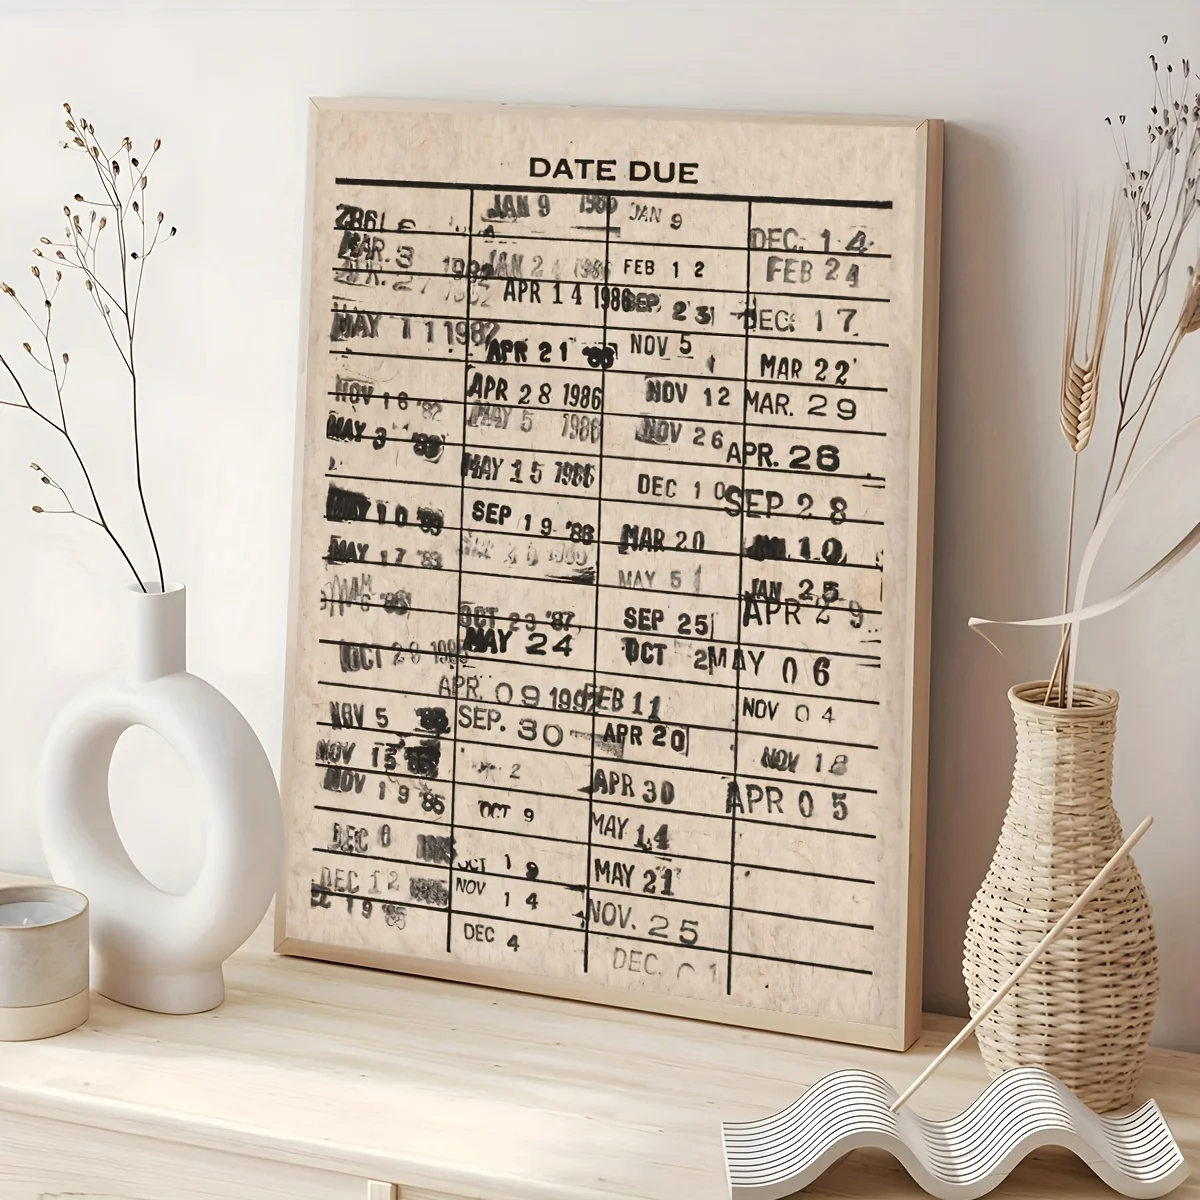 DATE DUE
MAR. 3 1982
MAY 11 1982
NOV 16 '82
MAY 3
MAY 10
MAY 17 '83
OCT 26
NOV 5
NOV 15
NOV 19 '85
DEC 6
DEC 12
19 '85
JAN 9 1986
JAN 2 1986
APR 14 1986
APR 21 '86
APR 28 1986
MAY 5 1986
MAY 15 1986
SEP 19 '86
OCT 23 '87
MAY 24
APR. 09 1992
SEP. 30
2
OCT 9
OCT 19
NOV 14
DEC 4
JAN 9
FEB 12
SEP. 23
NOV 5
NOV 12
NOV 26
DEC 10
MAR 20
MAY 5
SEP 25
OCT 2
FEB 11
APR 20
APR 30
MAY 14
MAY 21
NOV. 25
DEC. 01
DEC. 14
FEB 24
DEC. 17
MAR 22
MAR. 29
APR. 26
SEP 28
10
JAN 25
APR 29
MAY 06
NOV 04
NOV 18
APR 05